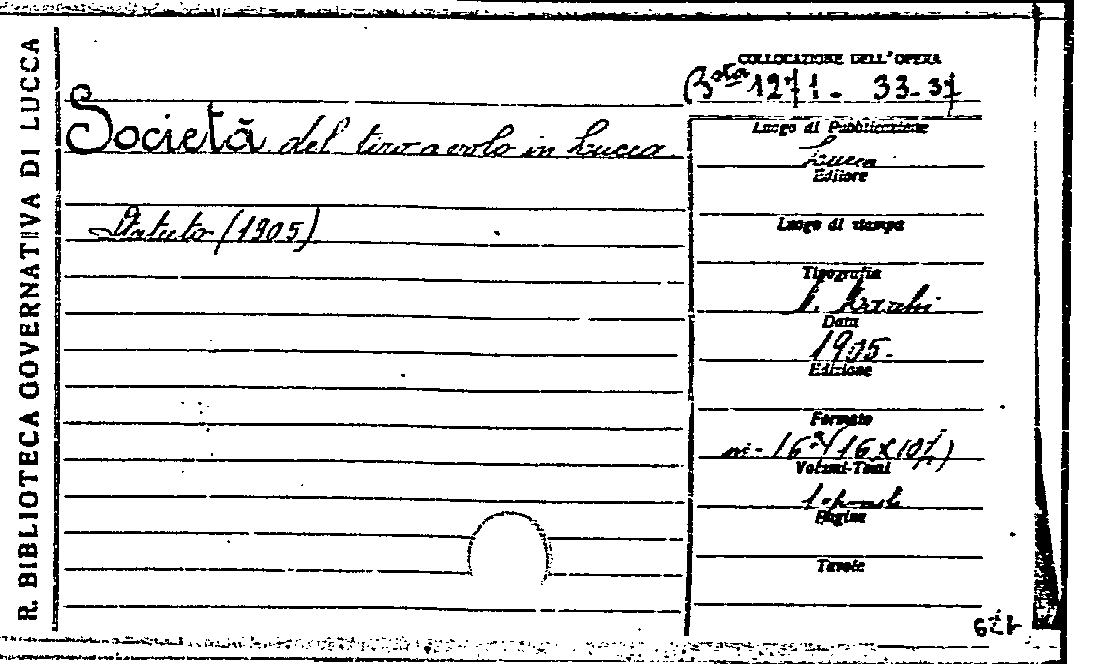 R. BIBLIOTECA GOVERNATIVA DI LUCCA
COLLOCAZIONE DELL'OPERA
Bsta 1271 - 33-37
Società del tiro a volo in Lucca
Statuto (1905)
Luogo di Pubblicazione
Lucca
Editore
Luogo di stampa
Tipografia
Data
1905.
Edizione
Formato
in-16° (16 x 10
Volumi-Tomi
Pagine
Tavole